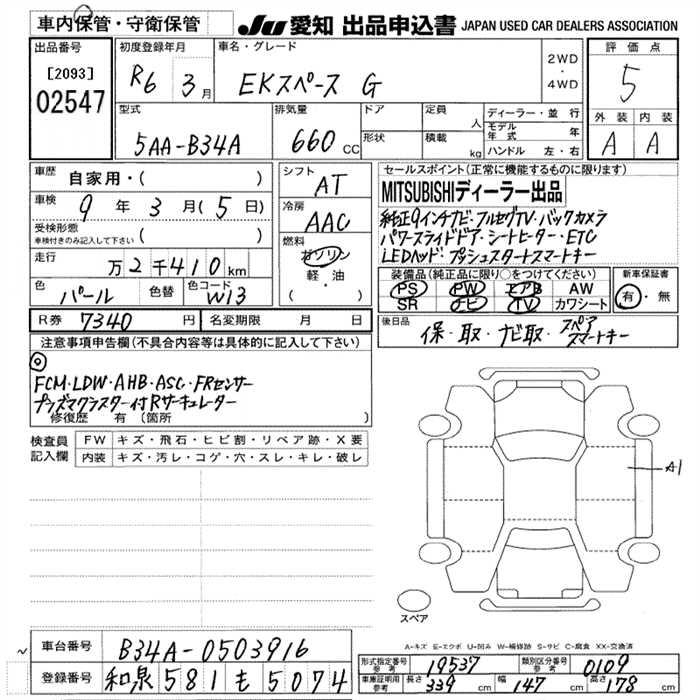 車内保管・守衛保管
JU 愛知 出品申込書 JAPAN USED CAR DEALERS ASSOCIATION
出品番号
[2093]
02547
初度登録年月
R6 3月
車名・グレード
EKスペース G
2WD
・
4WD
評価点
5
外装 内装
A A
型式
5AA-B34A
排気量
660 cc
ドア
形状
定員 人
積載 kg
ディーラー・並行
モデル年式 年
ハンドル 左・右
車歴
自家用・( )
車検
9年 3月(5日)
受検形態
車検付きのみ記入して下さい ( )
走行
万2千410km
色
パール
色替
色コード
W13
シフト
AT
冷房
AAC
燃料
ガソリン
軽・油
( )
セールスポイント(正常に機能するものに限ります)
MITSUBISHIディーラー出品
純正9インチナビ・フルセグTV・バックカメラ
パワースライドドア・シートヒーター・ETC
LEDヘッド・プッシュスタートスマートキー
装備品(純正品に限り○をつけてください)
PS PW エアB AW
SR ナビ TV カワシート
新車保証書
有・無
R券 7340円
名変期限 月 日
後日品
保・取・ナビ取・スペアスマートキー
注意事項申告欄(不具合内容等は具体的に記入して下さい)
◎
FCM・LDW・AHB・ASC・FRセンサー
プラズマクラスター付Rサーキュレーター
修復歴 有(箇所 )
検査員記入欄
FW キズ・飛石・ヒビ割・リペア跡・X要
内装 キズ・汚レ・コゲ・穴・スレ・キレ・破レ
A1
スペア
A-キズ E-エクボ U-凹み W-補修跡 S-サビ C-腐食 XX-交換済
車台番号 B34A-0503916
登録番号 和泉 581 も 5074
形式指定番号 参考 19537
類別区分番号 参考 0109
車庫証明用 参考 長さ 339cm 幅 147cm 高さ 178cm